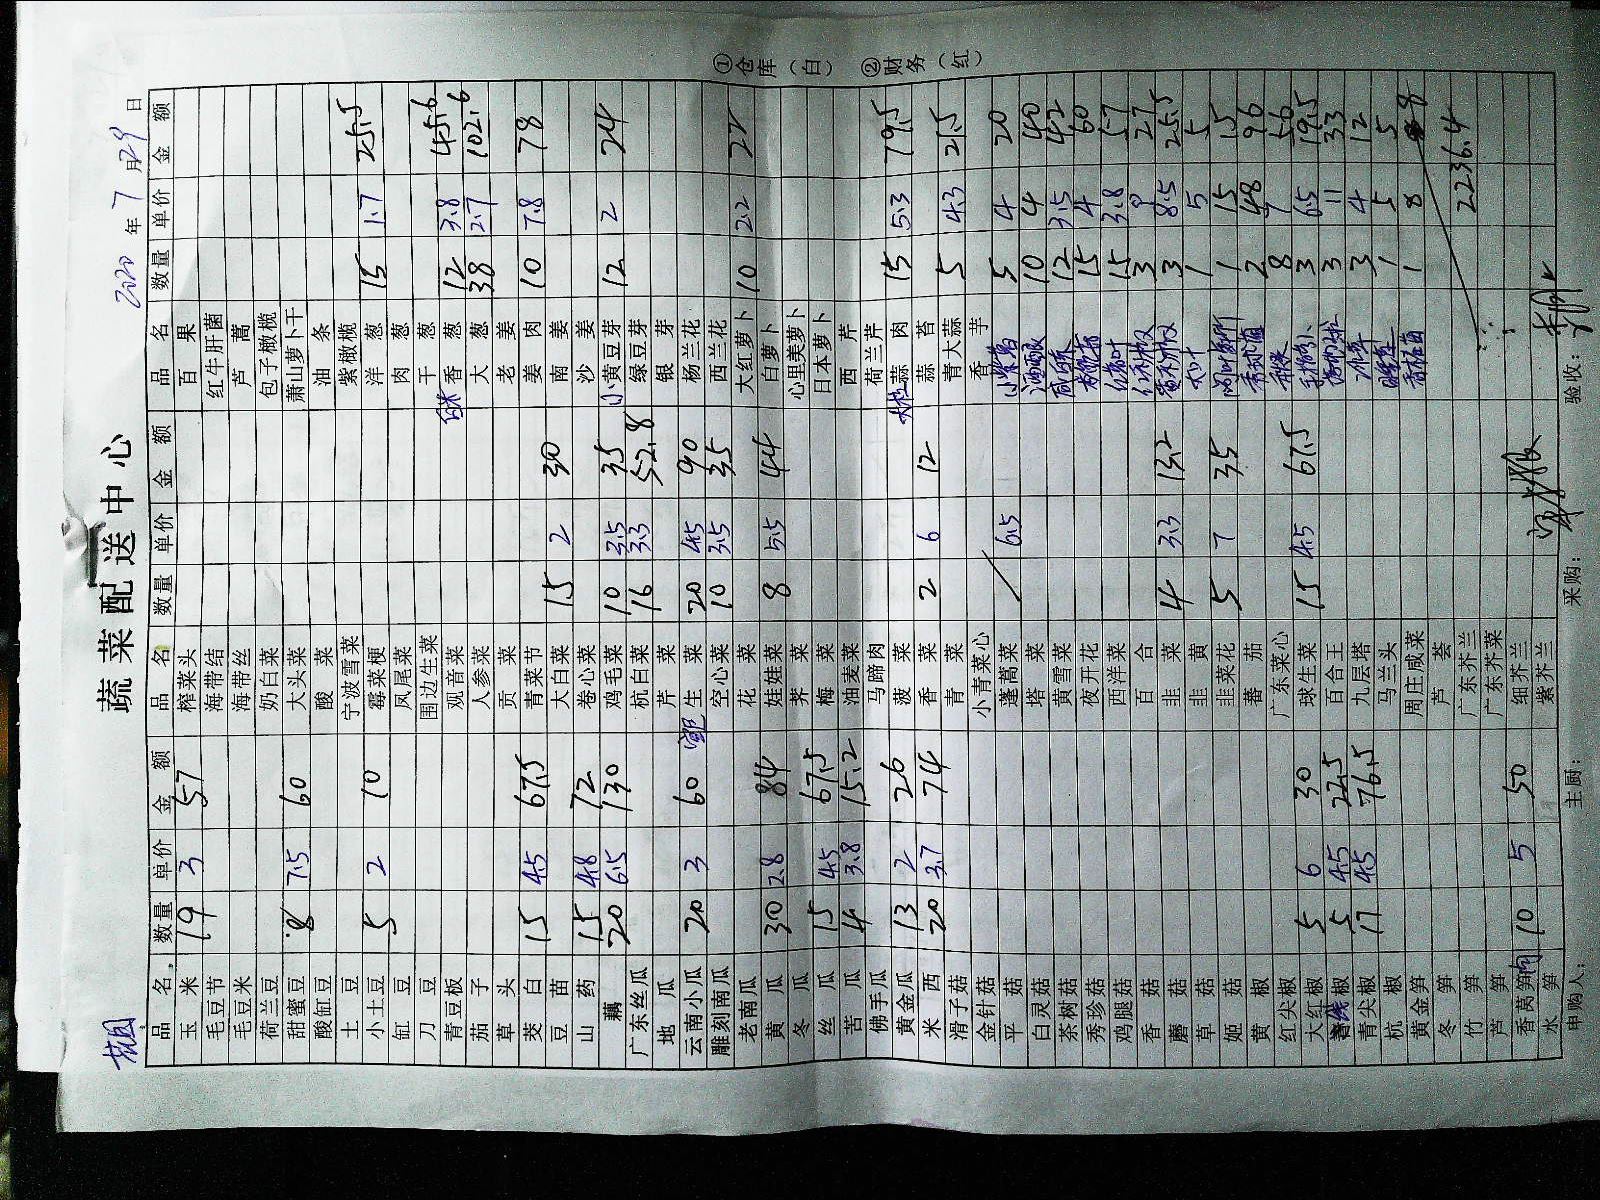 蔬菜配送中心
2020 年 7 月 29 日
品名 数量 单价 金额 品名 数量 单价 金额 品名 数量 单价 金额
玉米 19 3 57 榨菜头 百果
毛豆节 海带结 红牛肝菌
毛豆米 海带丝 芦蒿
荷兰豆 奶白菜 包子橄榄
甜蜜豆 8 7.5 60 大头菜 萧山萝卜干
酸缸豆 酸菜 油条
土豆 宁波雪菜 紫橄榄
小土豆 5 2 10 霉菜梗 洋葱 15 1.7 25.5
缸豆 凤尾菜 肉葱
刀豆 围边生菜 干葱
青豆板 观音菜 香葱 12 3.8 45.6
茄子 人参菜 大葱 38 2.7 102.6
草头 贡菜 老姜
茭白 15 4.5 67.5 青菜节 姜肉 10 7.8 78
豆苗 大白菜 15 2 30 南姜
山药 15 4.8 72 卷心菜 沙姜
藕 20 6.5 130 鸡毛菜 10 3.5 35 小黄豆芽 12 2 24
广东丝瓜 杭白菜 16 3.3 52.8 绿豆芽
地瓜 芹菜 银芽
云南小瓜 20 3 60 生菜 20 4.5 90 杨兰花
雕刻南瓜 空心菜 10 3.5 35 西兰花
老南瓜 花菜 大红萝卜 10 2.2 22
黄瓜 30 2.8 84 娃娃菜 8 5.5 44 白萝卜
冬瓜 荠菜 心里美萝卜
丝瓜 15 4.5 67.5 梅菜 日本萝卜
苦瓜 4 3.8 15.2 油麦菜 西芹
佛手瓜 马蹄肉 荷兰芹
黄金瓜 13 2 26 菠菜 蒜肉 15 5.3 79.5
米西 20 3.7 74 香菜 2 6 12 蒜苔
滑子菇 青菜 青大蒜 5 4.3 21.5
金针菇 小青菜心 香芋
平菇 蓬蒿菜 6.5 5 4 20
白灵菇 塔菜 10 4 40
茶树菇 黄雪菜 12 3.5 42
秀珍菇 夜开花 15 4 60
鸡腿菇 西洋菜 15 3.8 57
香菇 百合 3 9 27
蘑菇 韭菜 4 3.3 13.2 3 8.5 25.5
草菇 韭黄 1 5 5
姬菇 韭菜花 5 7 35 1 15 15
黄椒 蕃茄 2 48 96
红尖椒 广东菜心 8 7 56
大红椒 5 6 30 球生菜 15 4.5 67.5 3 6.5 19.5
青椒 5 4.5 22.5 百合王 3 11 33
青尖椒 17 4.5 76.5 九层塔 3 4 12
杭椒 马兰头 1 5 5
黄金笋 周庄咸菜 1 8 8
冬笋 芦荟
竹笋 广东芥兰 2236.4
芦笋 广东芥菜
香莴笋 10 5 50 细芥兰
水笋 紫芥兰
申购人: 主厨: 采购: 验收:
①仓库(白) ②财务(红)